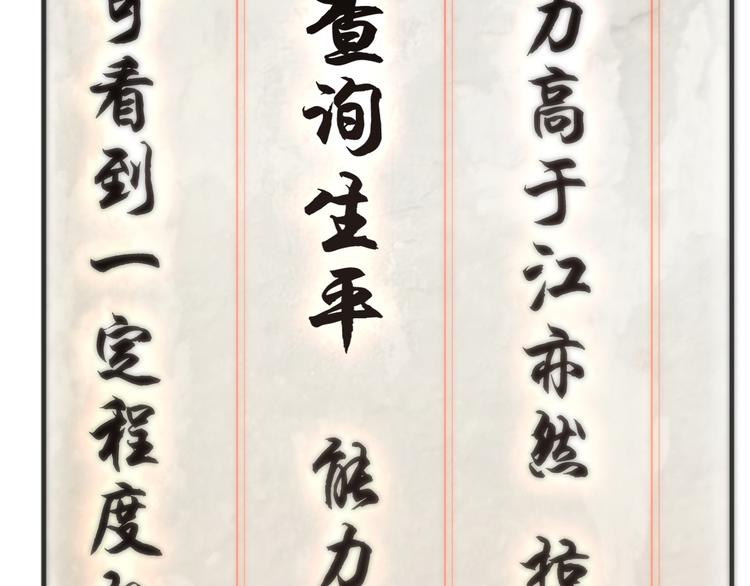 力高于江亦然
查询生平 能力
可看到一定程度